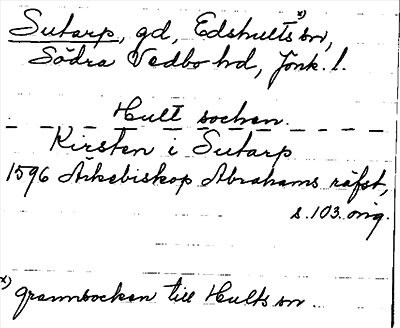 Sutarp, gd, Edshults x) sn,
Södra Vedbo hd, Jönk. l.
Hult socken.
Kirsten i Sutarp
1596 Ärkebiskop Abrahams räfst,
s. 103. orig.
x) grannsocken till Hults sn.